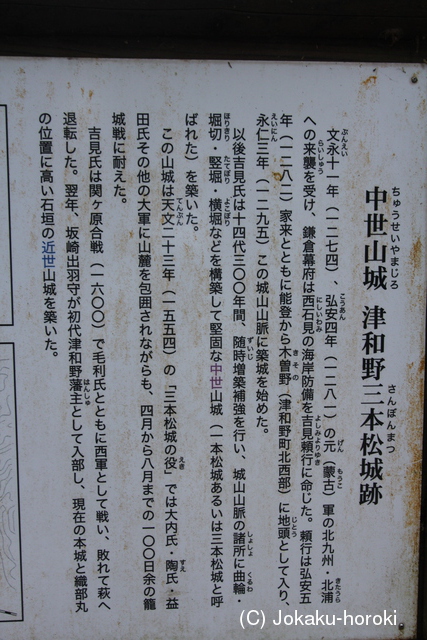 中世山城 津和野三本松城跡
ちゅうせいやまじろ
さんぼんまつ
文永十一年（一二七四）、弘安四年（一二八一）の元（蒙古）軍の北九州・北浦
ぶんえい
こうあん
げん
もうこ
きたうら
への来襲を受け、鎌倉幕府は西石見の海岸防備を吉見頼行に命じた。頼行は弘安五
らいしゅう
にしいわみ
よしみよりゆき
年（一二八二）家来とともに能登から木曽野（津和野町北西部）に地頭として入り、
きその
じとう
永仁三年（一二九五）この城山山脈に築城を始めた。
えいにん
以後吉見氏は十四代三〇〇年間、随時増築補強を行い、城山山脈の諸所に曲輪・
ずいじ
しょしょ
くるわ
堀切・竪堀・横堀などを構築して堅固な中世山城（一本松城あるいは三本松城と呼
ほりきり
たてぼり
よこぼり
ばれた）を築いた。
この山城は天文二十三年（一五五四）の「三本松城の役」では大内氏・陶氏・益
てんぶん
えき
すえ
田氏その他の大軍に山麓を包囲されながらも、四月から八月までの一〇〇日余の籠
城戦に耐えた。
吉見氏は関ヶ原合戦（一六〇〇）で毛利氏とともに西軍として戦い、敗れて萩へ
退転した。翌年、坂崎出羽守が初代津和野藩主として入部し、現在の本城と織部丸
はんしゅ
の位置に高い石垣の近世山城を築いた。
(C) Jokaku-horoki